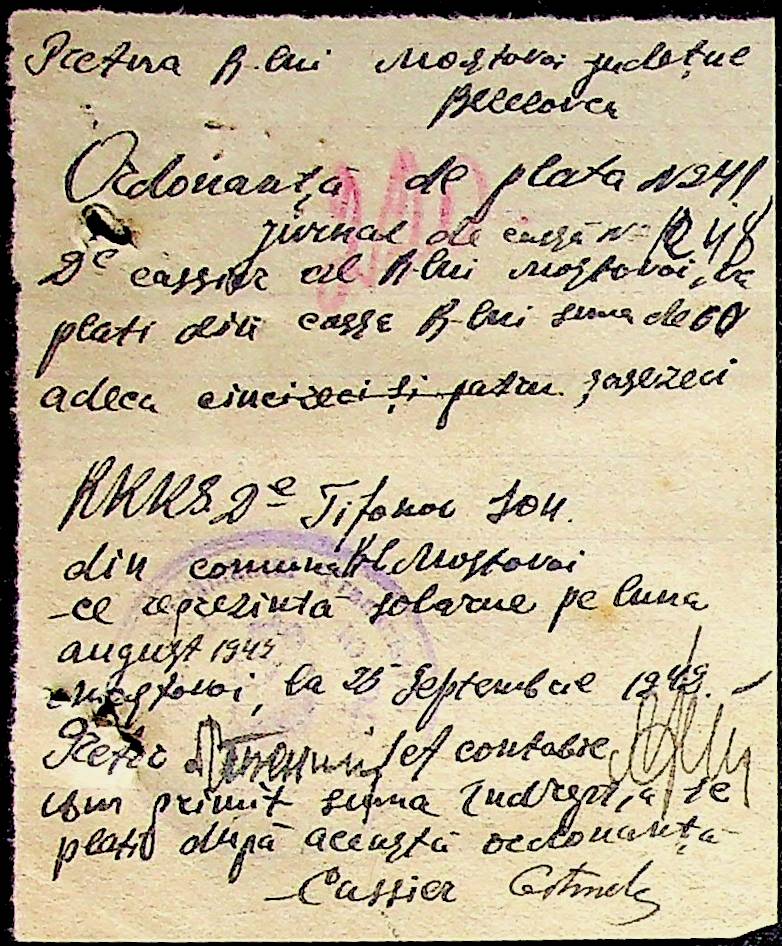 Pretura R-lui Mostovoi județul
Ordonanță de plata N 241
jurnal de cassă N 1248
De cassier al R-lui Mostovoi, va
plati din cassa R-lui suma de 60
adeca cincizeci și patru șasezeci
RKKS. De Tifonov Ion.
din comuna Mostovoi
ce reprezintă solarue pe luna
august 194
Mostovoi, la 25 Septembrie 194
Pretor șef contabil
am primit suma indrept, a se
plati după această ordonanță
Cassier